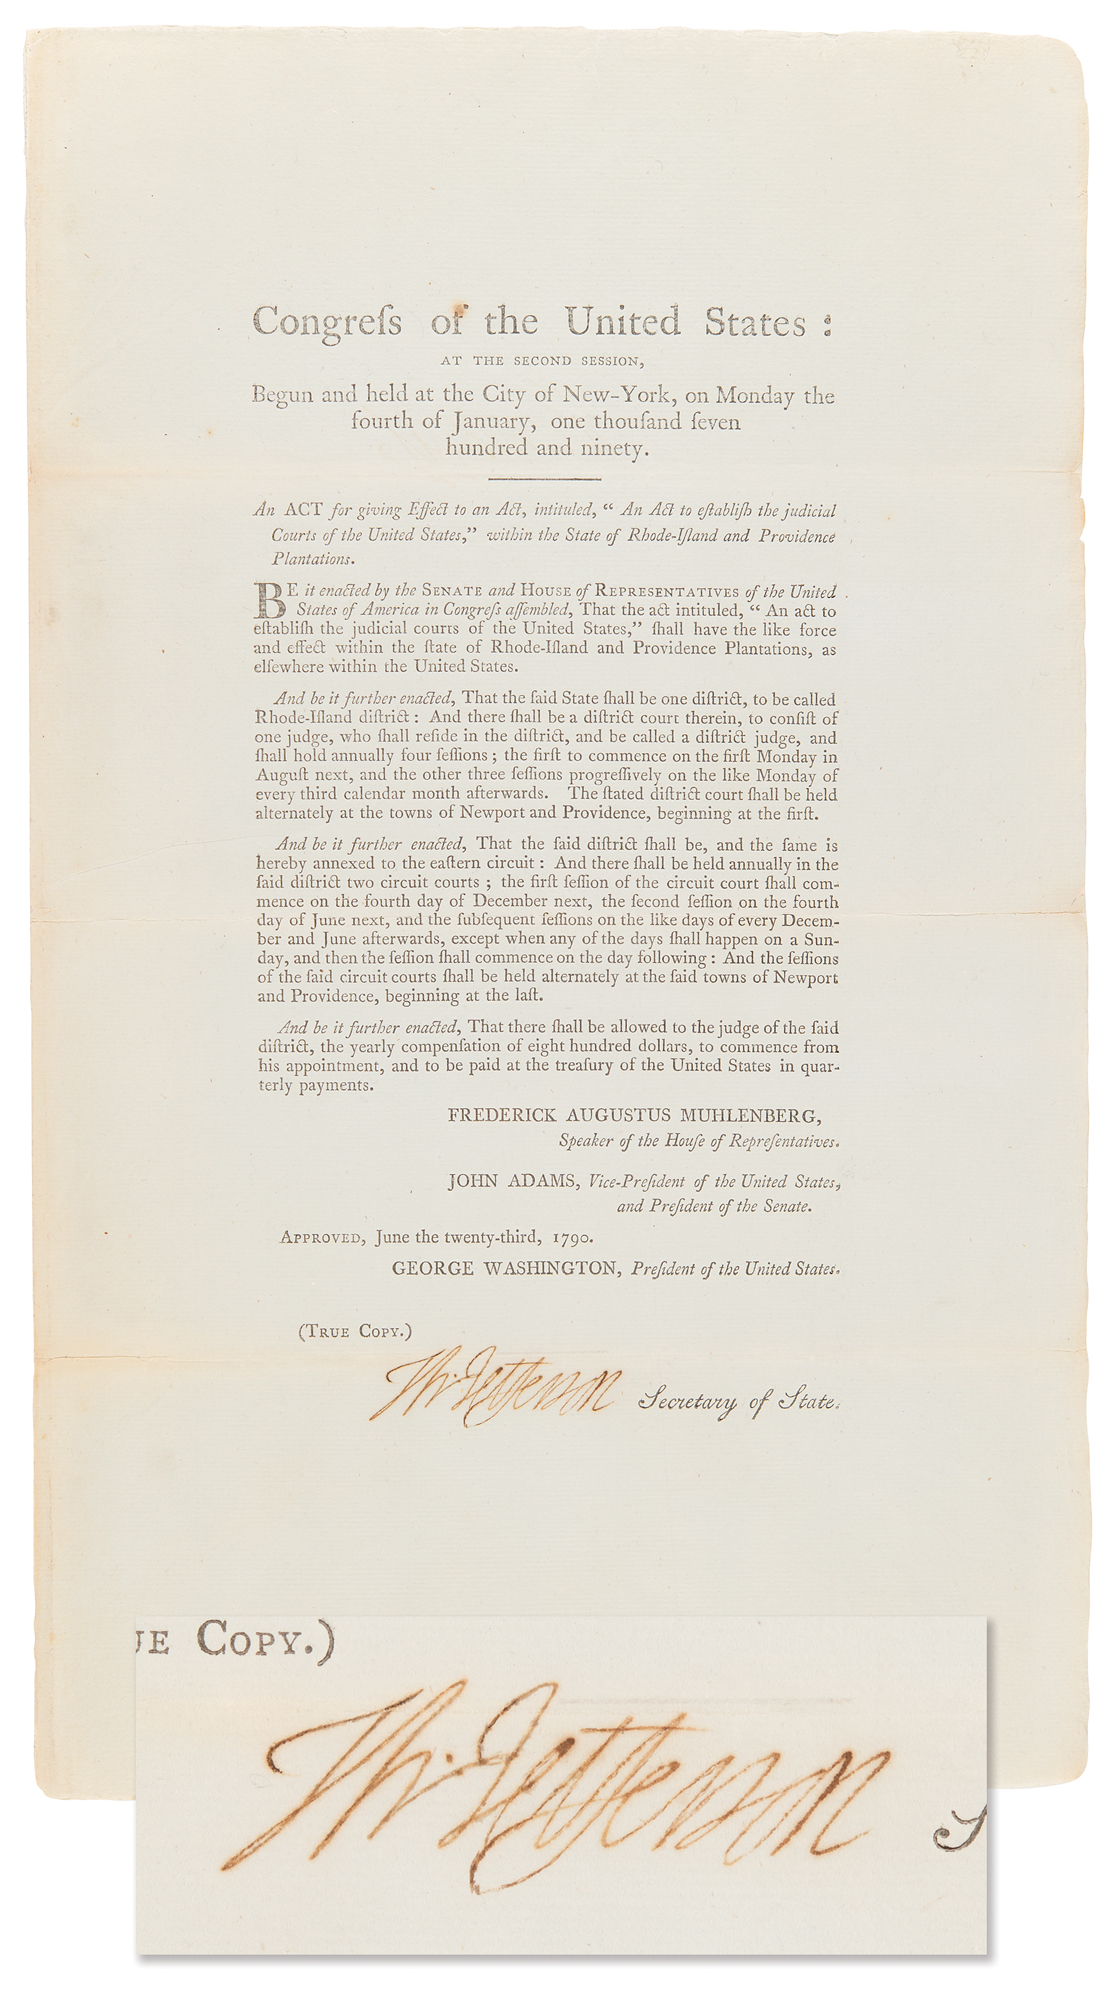 Congreſs of the United States:
AT THE SECOND SESSION,
Begun and held at the City of New-York, on Monday the
fourth of January, one thouſand ſeven
hundred and ninety.
An ACT for giving Effect to an Act, intituled, “ An Act to eſtabliſh the judicial
Courts of the United States,” within the State of Rhode-Iſland and Providence
Plantations.
BE it enacted by the SENATE and HOUSE of REPRESENTATIVES of the United
States of America in Congreſs aſſembled, That the act intituled, “ An act to
eſtabliſh the judicial courts of the United States,” ſhall have the like force
and effect within the ſtate of Rhode-Iſland and Providence Plantations, as
elſewhere within the United States.
And be it further enacted, That the ſaid State ſhall be one diſtrict, to be called
Rhode-Iſland diſtrict: And there ſhall be a diſtrict court therein, to conſiſt of
one judge, who ſhall reſide in the diſtrict, and be called a diſtrict judge, and
ſhall hold annually four ſeſſions; the firſt to commence on the firſt Monday in
Auguſt next, and the other three ſeſſions progreſſively on the like Monday of
every third calendar month afterwards. The ſtated diſtrict court ſhall be held
alternately at the towns of Newport and Providence, beginning at the firſt.
And be it further enacted, That the ſaid diſtrict ſhall be, and the ſame is
hereby annexed to the eaſtern circuit: And there ſhall be held annually in the
ſaid diſtrict two circuit courts; the firſt ſeſſion of the circuit court ſhall com-
mence on the fourth day of December next, the ſecond ſeſſion on the fourth
day of June next, and the ſubſequent ſeſſions on the like days of every Decem-
ber and June afterwards, except when any of the days ſhall happen on a Sun-
day, and then the ſeſſion ſhall commence on the day following: And the ſeſſions
of the ſaid circuit courts ſhall be held alternately at the ſaid towns of Newport
and Providence, beginning at the laſt.
And be it further enacted, That there ſhall be allowed to the judge of the ſaid
diſtrict, the yearly compenſation of eight hundred dollars, to commence from
his appointment, and to be paid at the treaſury of the United States in quar-
terly payments.
FREDERICK AUGUSTUS MUHLENBERG,
Speaker of the Houſe of Repreſentatives.
JOHN ADAMS, Vice-Preſident of the United States,
and Preſident of the Senate.
APPROVED, June the twenty-third, 1790.
GEORGE WASHINGTON, Preſident of the United States.
(TRUE COPY.)
Th: Jefferson Secretary of State.
UE COPY.)
Th: Jefferson S